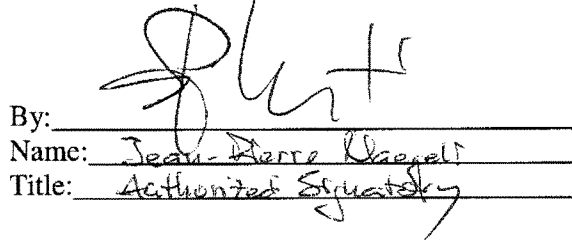 By:
Name: Jean-Pierre Naegeli
Title: Authorized Signatory